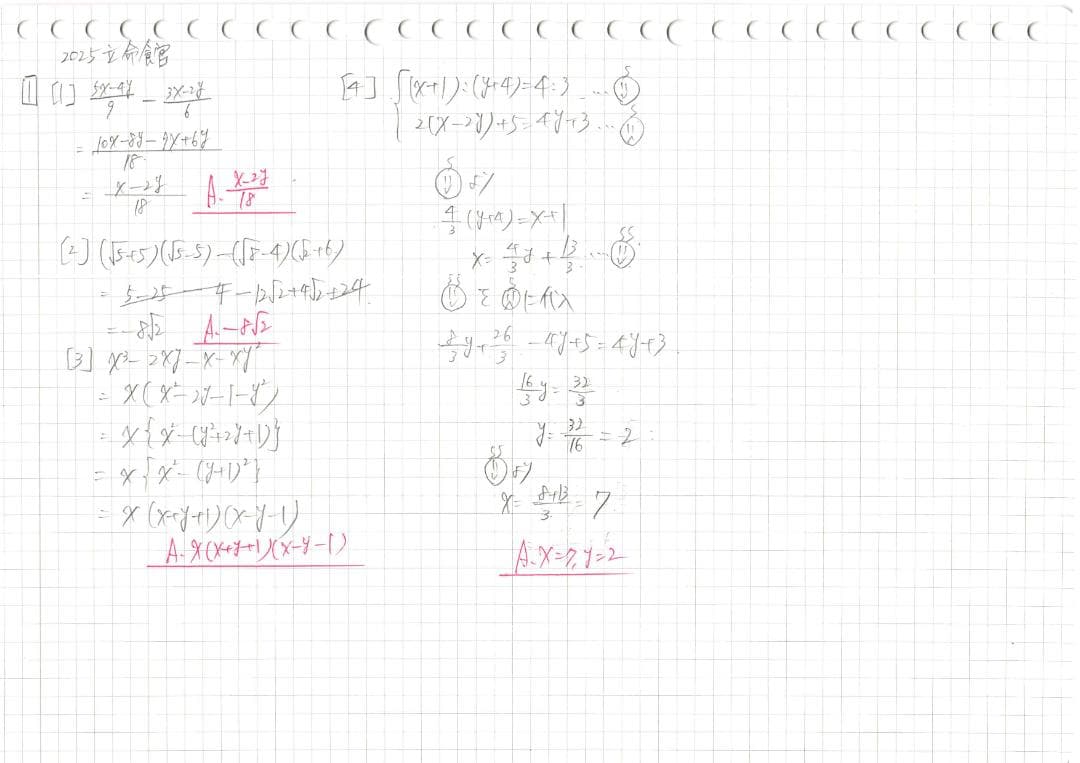 2025 立命館
1 [1] (5x-4y)/9 - (3x-2y)/6
= (10x-8y-9x+6y)/18
= (x-2y)/18 A. (x-2y)/18
[2] (√5+5)(√5-5)-(√8-4)(√2+6)
= 5-25-4-12√2+4√2+24
=-8√2 A.-8√2
[3] x³-2xy-x-xy²
= x(x²-2y-1-y²)
= x{x²-(y²+2y+1)}
= x{x²-(y+1)²}
= x(x+y+1)(x-y-1)
A. x(x+y+1)(x-y-1)
[4] {(x+1):(y+4)=4:3 …
2(x-2y)+5=4y+3 …
より
4/3(y+4)=x+1
x= 4/3 y + 13/3 …
を に代入
8/3 y + 26/3 -4y+5=4y+3
16/3 y= 32/3
y= 32/16 = 2
より
x= (8+13)/3 = 7
A. x=7, y=2